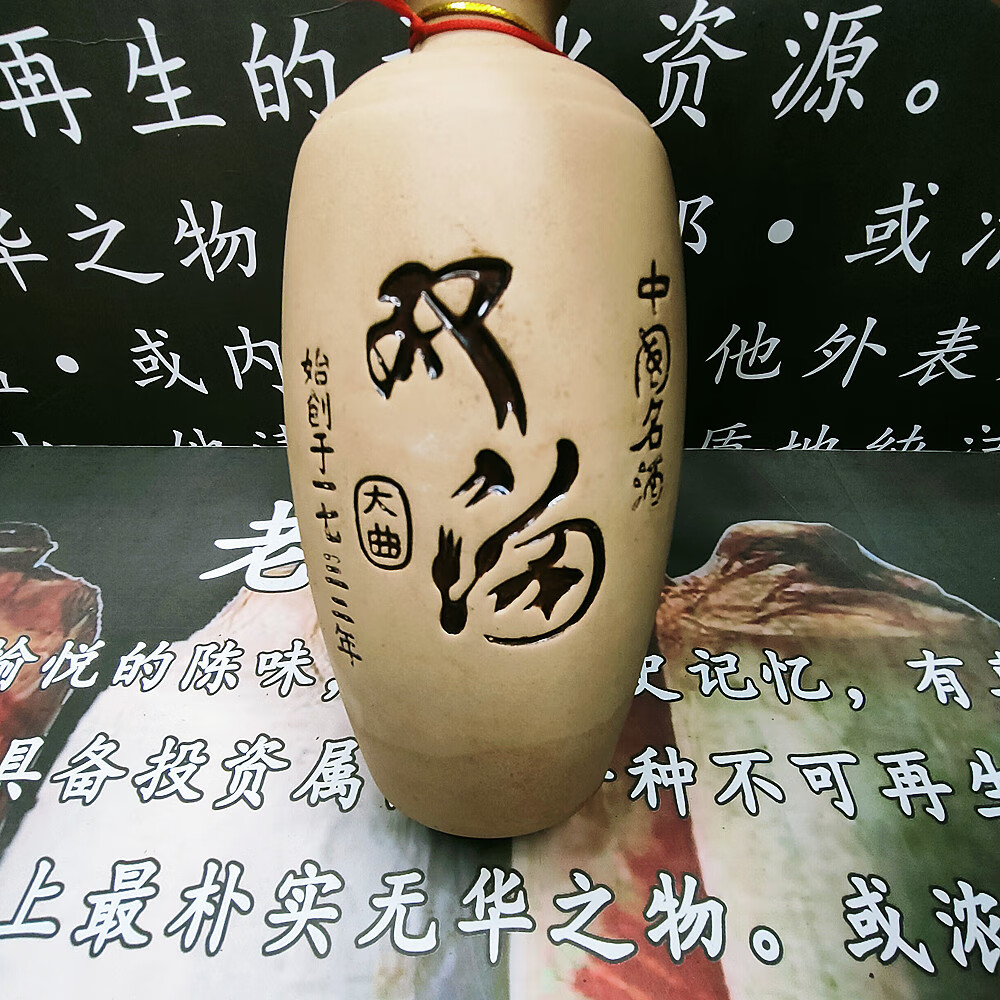 再生的 资源。
华之物 · 或
· 或内 他外表
中國名酒
双沟
大曲
始创于一七三二年
老
愉悦的陈味, 史记忆,有
具备投资属 一种不可再生
上最朴实无华之物。或浓